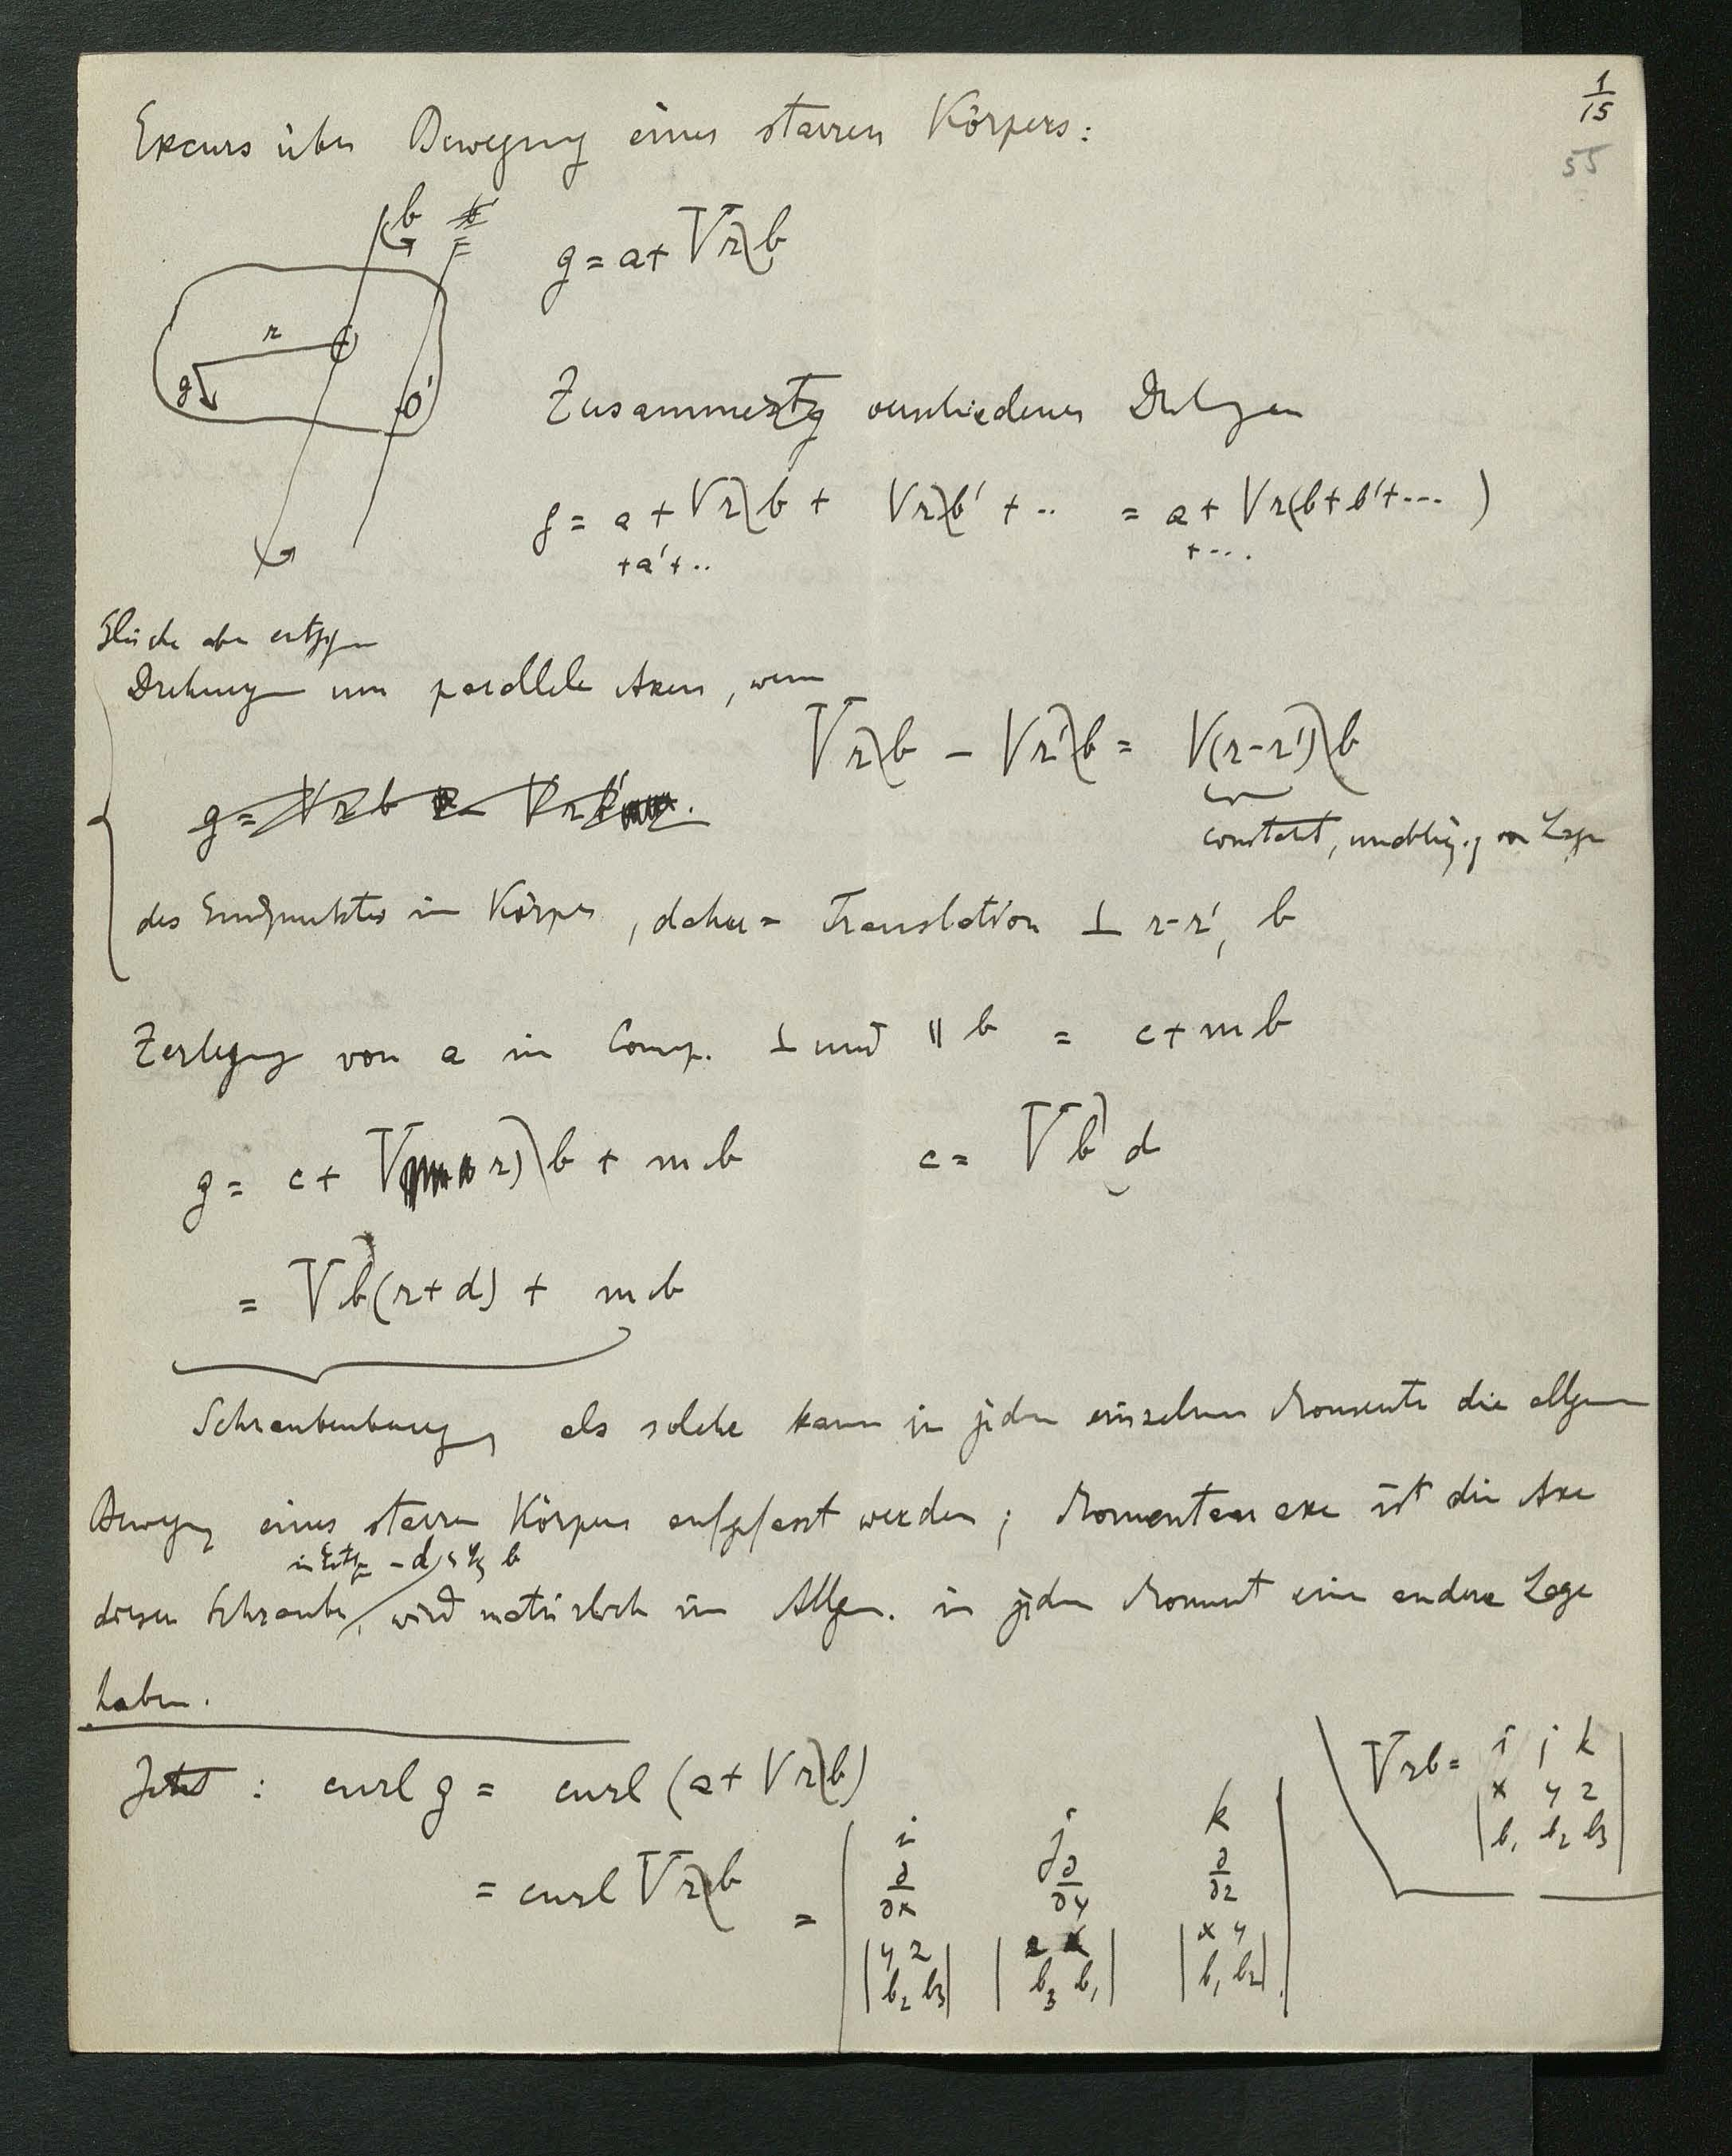 1/15
55
Excurs über Bewegung eines starren Körpers:
b
g = a + V r b
r
g
O
O'
Zusammensetzg verschiedener Drehgen
g = a + V r b + V r b' + .. = a + V r (b + b' + ---)
+ a' + ..
+ ---.
Gleiche aber entggn
Drehungen um parallele Axen, wenn
V r b – V r' b = V(r-r') b
g = V r b – V r b'
constant, unabhägig von Lage
des Endpunktes im Körper, daher = Translation ⊥ r-r', b
Zerlegung von a in Comp. ⊥ und ∥ b = c + m b
g = c + V r) b + m b
c = V b d
= V b (r + d) + m b
Schraubenbewegg, als solche kann in jedem einzelnen Momente die allgem
Bewegung eines starren Körpers aufgefasst werden; Momentanaxe ist die Axe
in Entfg – d b
dieser Schraube, wird natürlich im Allgem. in jedem Moment eine andere Lage
haben.
Jetzt: curl g = curl (a + V r b)
V r b = | i j k
x y z
b₁ b₂ b₃ |
= curl V r b = | i j k
∂/∂x ∂/∂y ∂/∂z
| y z | | z x | | x y |
| b₂ b₃ | | b₃ b₁ | | b₁ b₂ | |